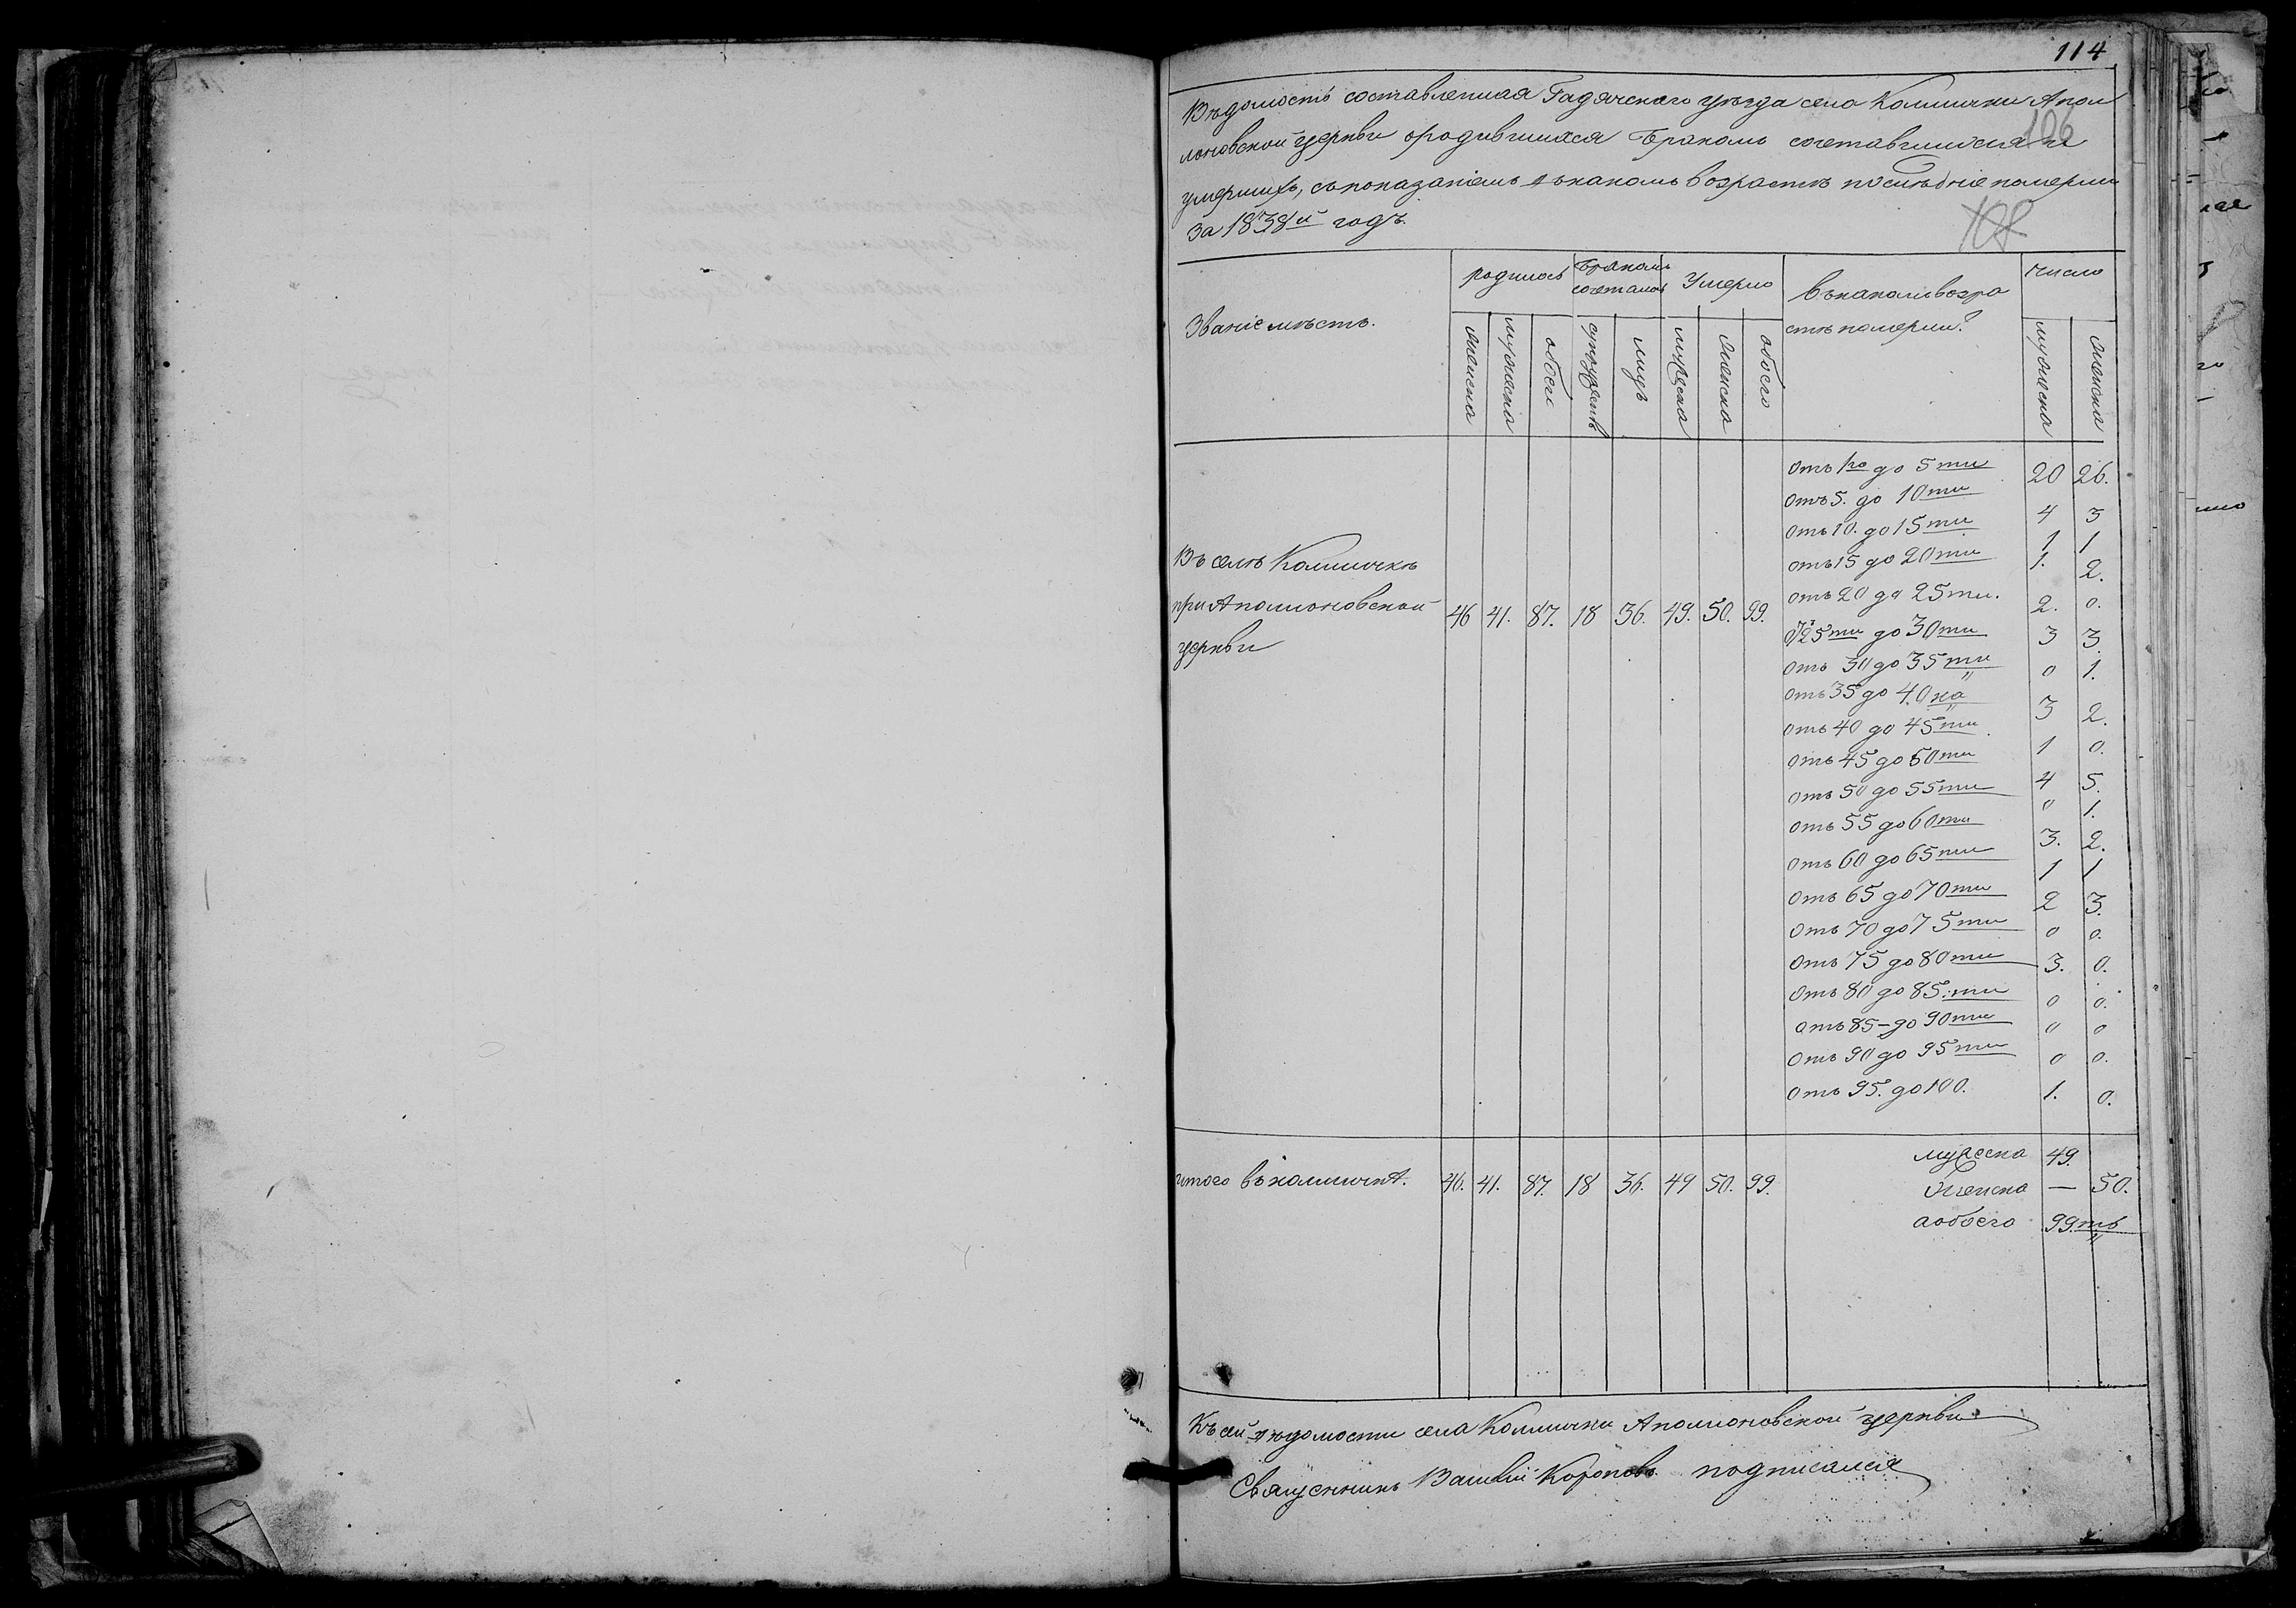 114
Вѣдомость составленная Гадячскаго уѣзда села Комишки Апол
лоновской церкви ородившихся бракомъ сочетавшихся и
106
умершихъ, съ показаніемъ въ какомъ возрастѣ послѣдніе померли
за 1838й годъ.
Званіе мѣстъ.
родилось
бракомъ сочеталось
Умерло
въ какомъ возра
стѣ померли?
число
женска
мужеска
обоего
супружествъ
лицъ
мужеска
женска
обоего
мужеска
женска
отъ 1го до 5ти 20 26.
отъ 5. до 10ти 4 3
отъ 10. до 15ти 1 1
отъ 15 до 20ти 1. 2.
отъ 20 до 25ти. 2. 0.
от 25ти до 30ти 3 3.
отъ 30 до 35ти 0 1.
отъ 35 до 40ка 3 2.
отъ 40 до 45ти 1 0.
отъ 45 до 50ти 4 5.
отъ 50 до 55ти 0 1.
отъ 55 до 60ти 3. 2.
отъ 60 до 65ти 1 1
отъ 65 до 70ти 2 3.
отъ 70 до 75ти 0 0.
отъ 75 до 80ти 3. 0.
отъ 80 до 85.ти 0 0.
отъ 85 – до 90ти 0 0
отъ 90 до 95ти 0 0.
отъ 95. до 100. 1. 0.
Въ селѣ Комишкѣ
при Аполлоновской 46 41. 87. 18 36. 49. 50. 99.
церкви
итого въ комишкѣ. 46. 41. 87. 18 36. 49 50. 99.
мужеска 49.
женска — 50.
а обоего 99.ть
Къ сей вѣдомости села Комишки Аполлоновской церкви
Священникъ подписался